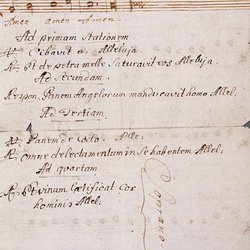 Amen Amen Amen.
Ad primam Stationem
℣. Cibavit a Alleluja.
℟. Et de petra melle Saturavit eos Alleluja.
Ad Secundam.
Respon. Panem Angelorum manducavit homo Allel:
Ad Tertiam.
℣. Panem de Coelo. Alle:
℟. omne delectamentum in Se habentem Allel:
Ad quartam
℟. Et vinum Laetificat Cor
hominis Allel.
Soprano